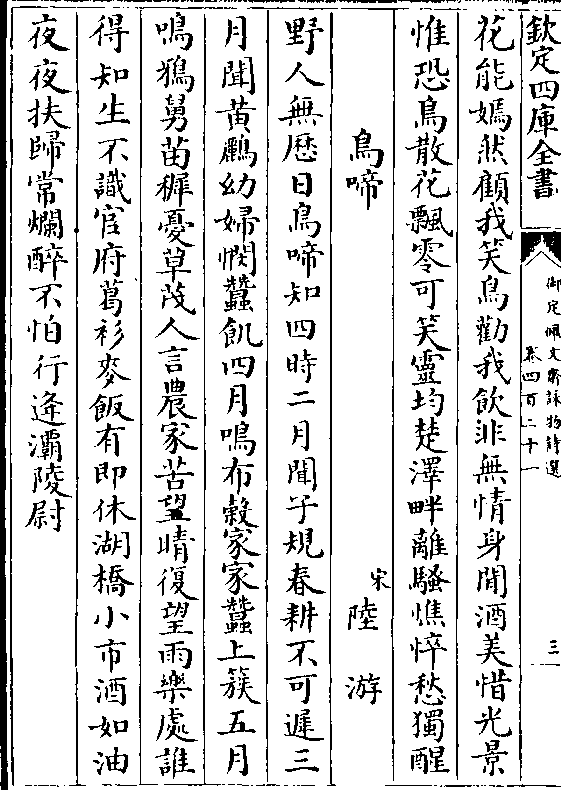 欽定四庫全書
御定佩文齋詠物詩選
卷四百二十一
三
花能嫣然顧我笑鳥勸我飲非無情身閒酒美惜光景
惟恐鳥散花飄零可笑靈均楚澤畔離騷憔悴愁獨醒
鳥啼
宋陸游
野人無歷日鳥啼知四時二月聞子規春耕不可遲三
月聞黃鸝幼婦憫蠶飢四月鳴布穀家家蠶上簇五月
鳴鴉舅苗穉憂草茂人言農家苦望晴復望雨樂處誰
得知生不識官府葛衫麥飯有即休湖橋小市酒如油
夜夜扶歸常爛醉不怕行逢灞陵尉